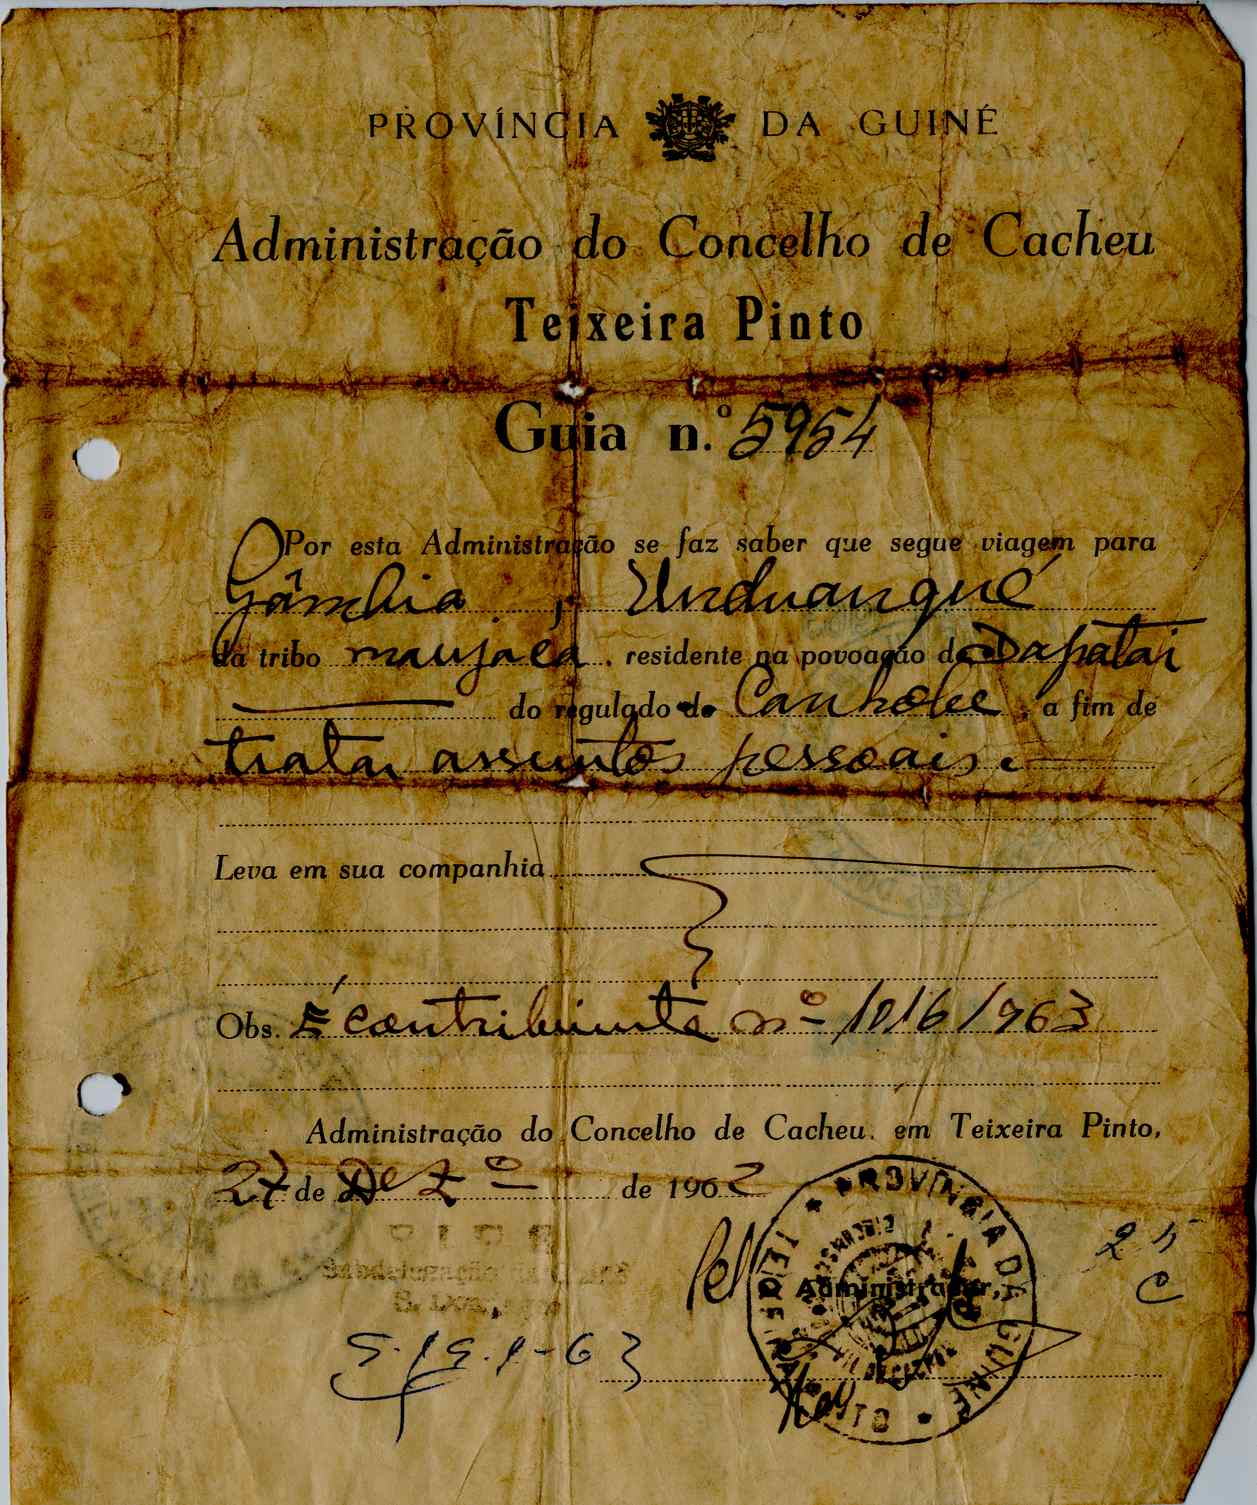 PROVÍNCIA DA GUINÉ
Administração do Concelho de Cacheu
Teixeira Pinto
Guia n.º 5954
Por esta Administração se faz saber que segue viagem para
Gâmbia, Unduanqué
da tribo manjaca, residente na povoação de Dapatar
do regulado de Canhobe, a fim de
tratar assuntos pessoais.
Leva em sua companhia
Obs. É contribuinte nº 1016/963
Administração do Concelho de Cacheu, em Teixeira Pinto,
27 de Dezº de 1962
PROVÍNCIA DA GUINÉ
PIDE
Pel' O Administrador,
25
S. 19.1-63